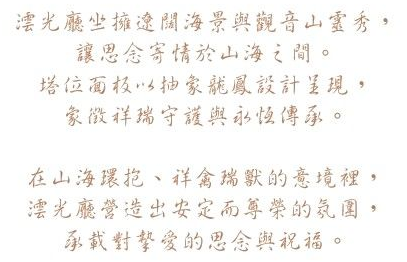 澐光廳坐擁遼闊海景與觀音山靈秀，
讓思念寄情於山海之間。
塔位面板以抽象龍鳳設計呈現，
象徵祥瑞守護與永恆傳承。
在山海環抱、祥禽瑞獸的意境裡，
澐光廳營造出安定而尊榮的氛圍，
承載對摯愛的思念與祝福。